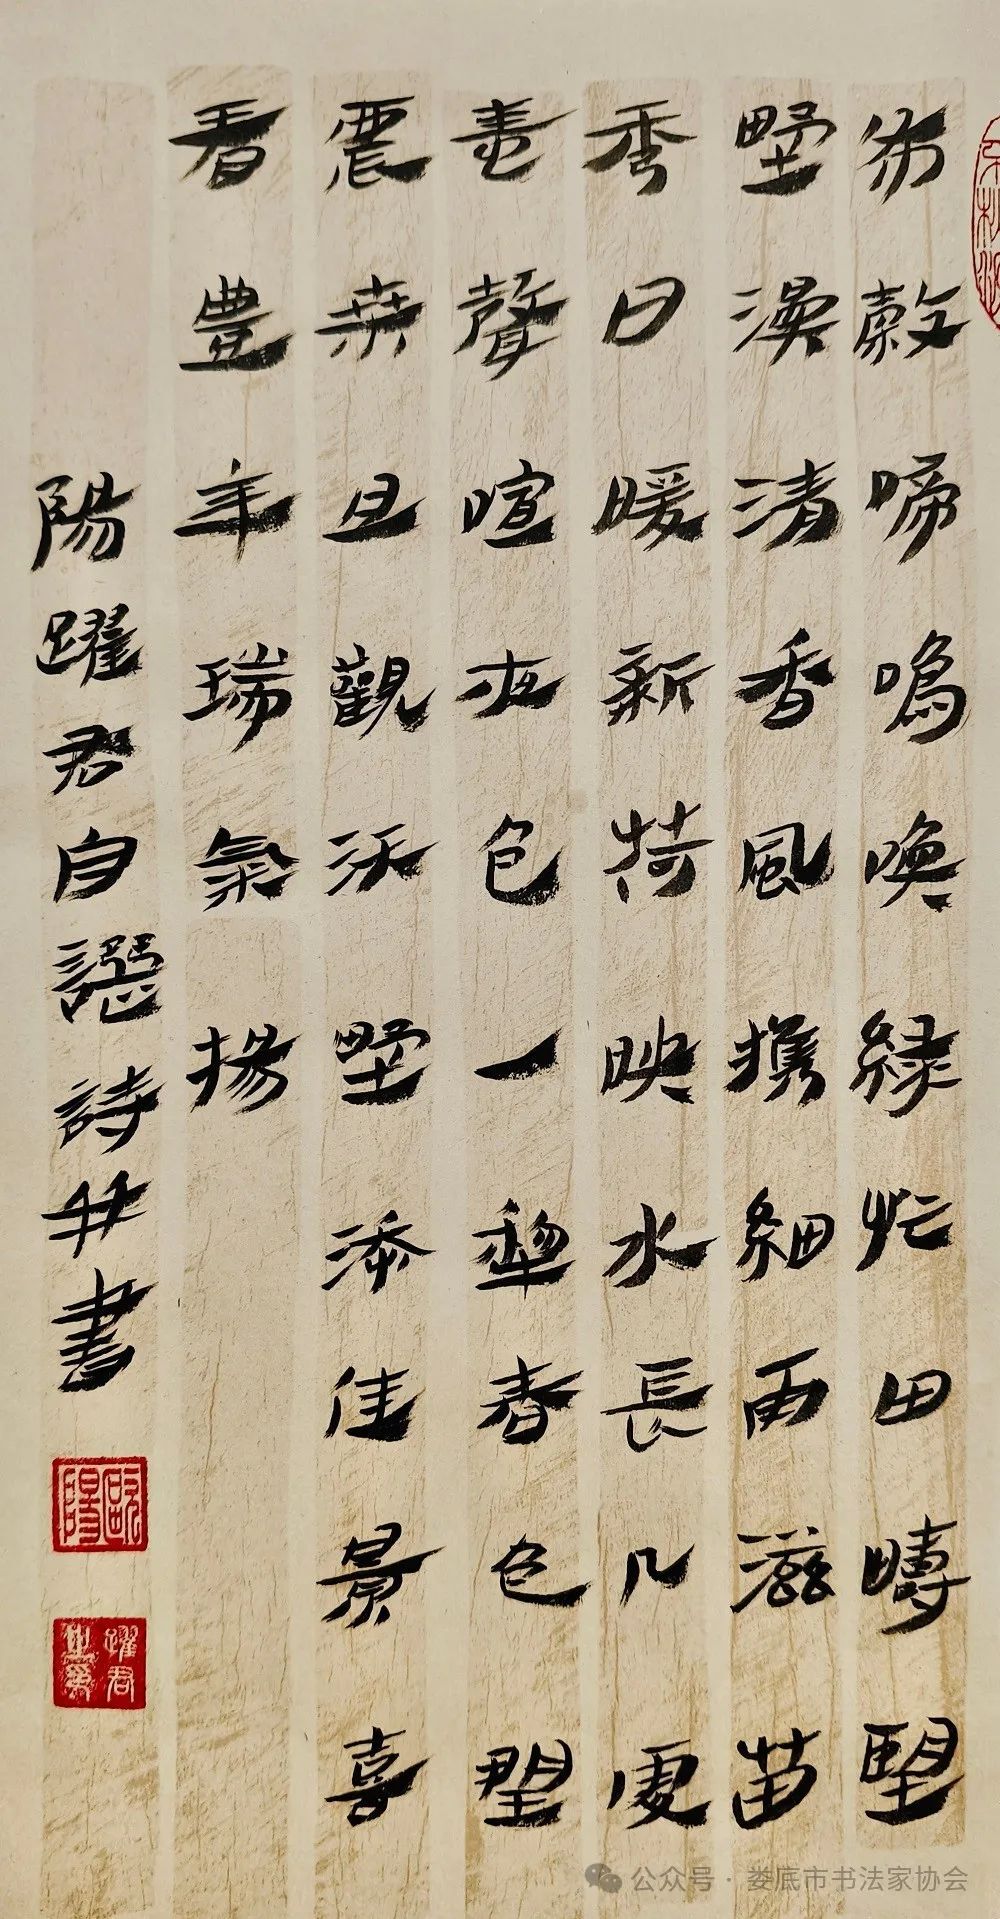 布穀啼鳴喚綠忙田疇望
野漫清香風携細雨滋苗
秀日暖新荷映水長几處
聲喧夜色一犁春色
農桑且觀沃野添佳景喜
看豐年瑞氣揚
陽躍君自譔詩并書
歐陽
躍君
公众号·娄底市书法家协会